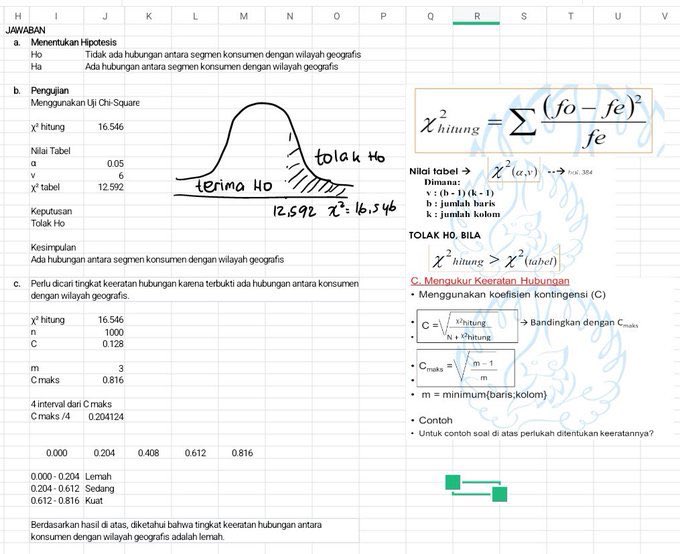 H I J K L M N O P Q R S T U V
JAWABAN
a. Menentukan Hipotesis
Ho Tidak ada hubungan antara segmen konsumen dengan wilayah geografis
Ha Ada hubungan antara segmen konsumen dengan wilayah geografis
b. Pengujian
Menggunakan Uji Chi-Square
χ² hitung 16.546
Nilai Tabel
α 0.05
v 6
χ² tabel 12.592
Keputusan
Tolak Ho
Kesimpulan
Ada hubungan antara segmen konsumen dengan wilayah geografis
terima Ho
tolak Ho
12,592 χ²= 16,546
c. Perlu dicari tingkat keeratan hubungan karena terbukti ada hubungan antara konsumen
dengan wilayah geografis.
χ² hitung 16.546
n 1000
C 0.128
m 3
C maks 0.816
4 interval dari C maks
C maks /4 0.204124
0.000 0.204 0.408 0.612 0.816
0.000 - 0.204 Lemah
0.204 - 0.612 Sedang
0.612 - 0.816 Kuat
Berdasarkan hasil di atas, diketahui bahwa tingkat keeratan hubungan antara
konsumen dengan wilayah geografis adalah lemah.
χ² hitung = ∑ (fo − fe)² / fe
Nilai tabel → χ²(α,v) --→
Dimana:
v : (b - 1) (k - 1)
b : jumlah baris
k : jumlah kolom
TOLAK H0, BILA
χ² hitung > χ² (tabel)
C. Mengukur Keeratan Hubungan
• Menggunakan koefisien kontingensi (C)
• C = √ χ²hitung / N + χ²hitung → Bandingkan dengan Cmaks
• Cmaks = √ m − 1 / m
• m = minimum{baris;kolom}
• Contoh
• Untuk contoh soal di atas perlukah ditentukan keeratannya?